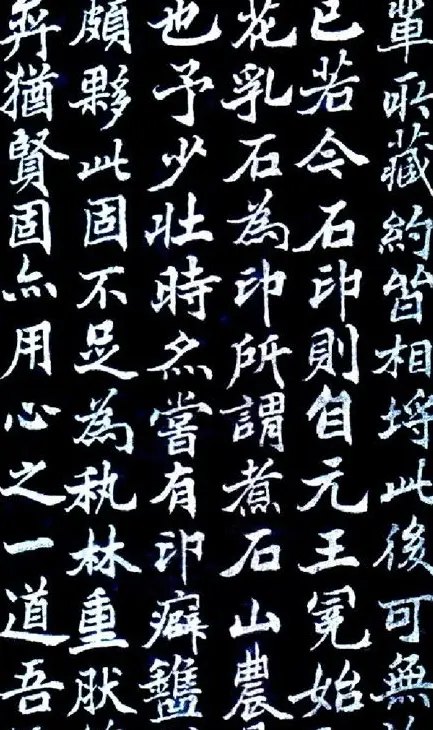 輩所藏約皆相埒此後可無
已若今石印則自元王冕始
花乳石為印所謂煮石山農
也予少壯時亦嘗有印癖鐫
頗夥此固不足為執林重肰
弈猶賢固亦用心之一道吾